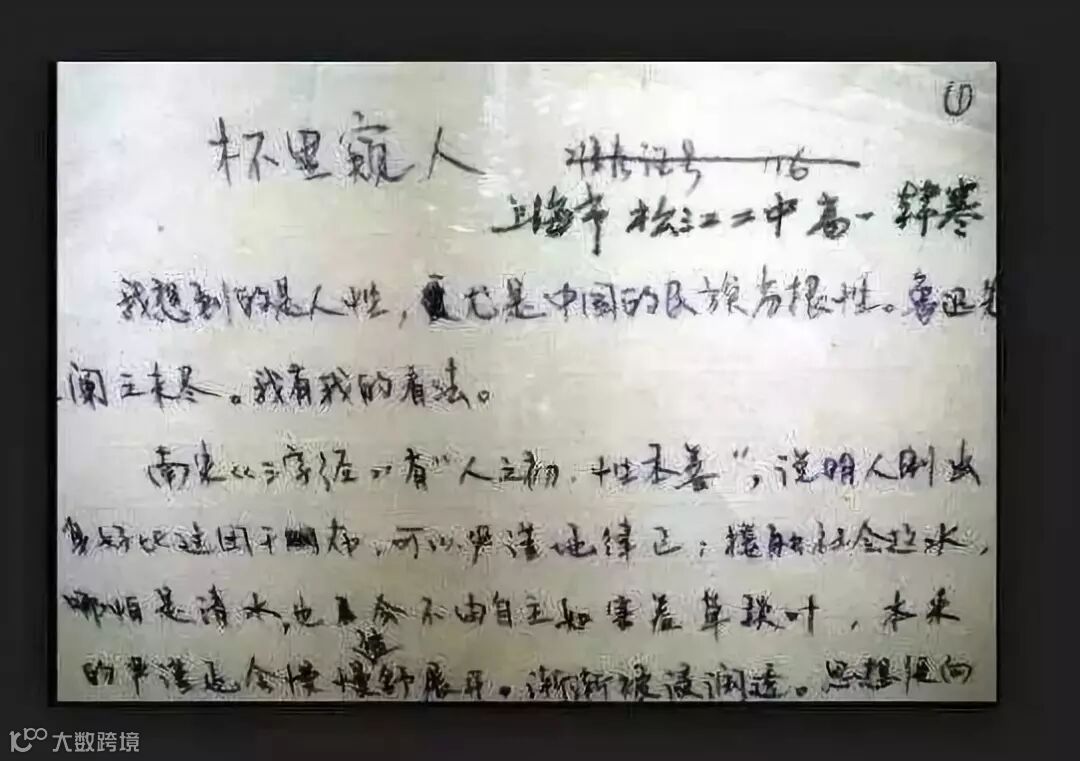 ①
杯里窥人
准考证号 116
上海市 松江二中 高一 韩寒
我想到的是人性，尤是中国的民族劣根性。鲁迅先
阐之未尽。我有我的看法。
南宋《三字经》有“人之初，性本善”，说明人刚出
好比这团干布，可以严谨地律己；接触社会这水，
哪怕是清水，也会不由自主如害羞草叶，本来
的严谨也会慢慢地舒展开。渐渐被浸润透。思想便向
大数跨境